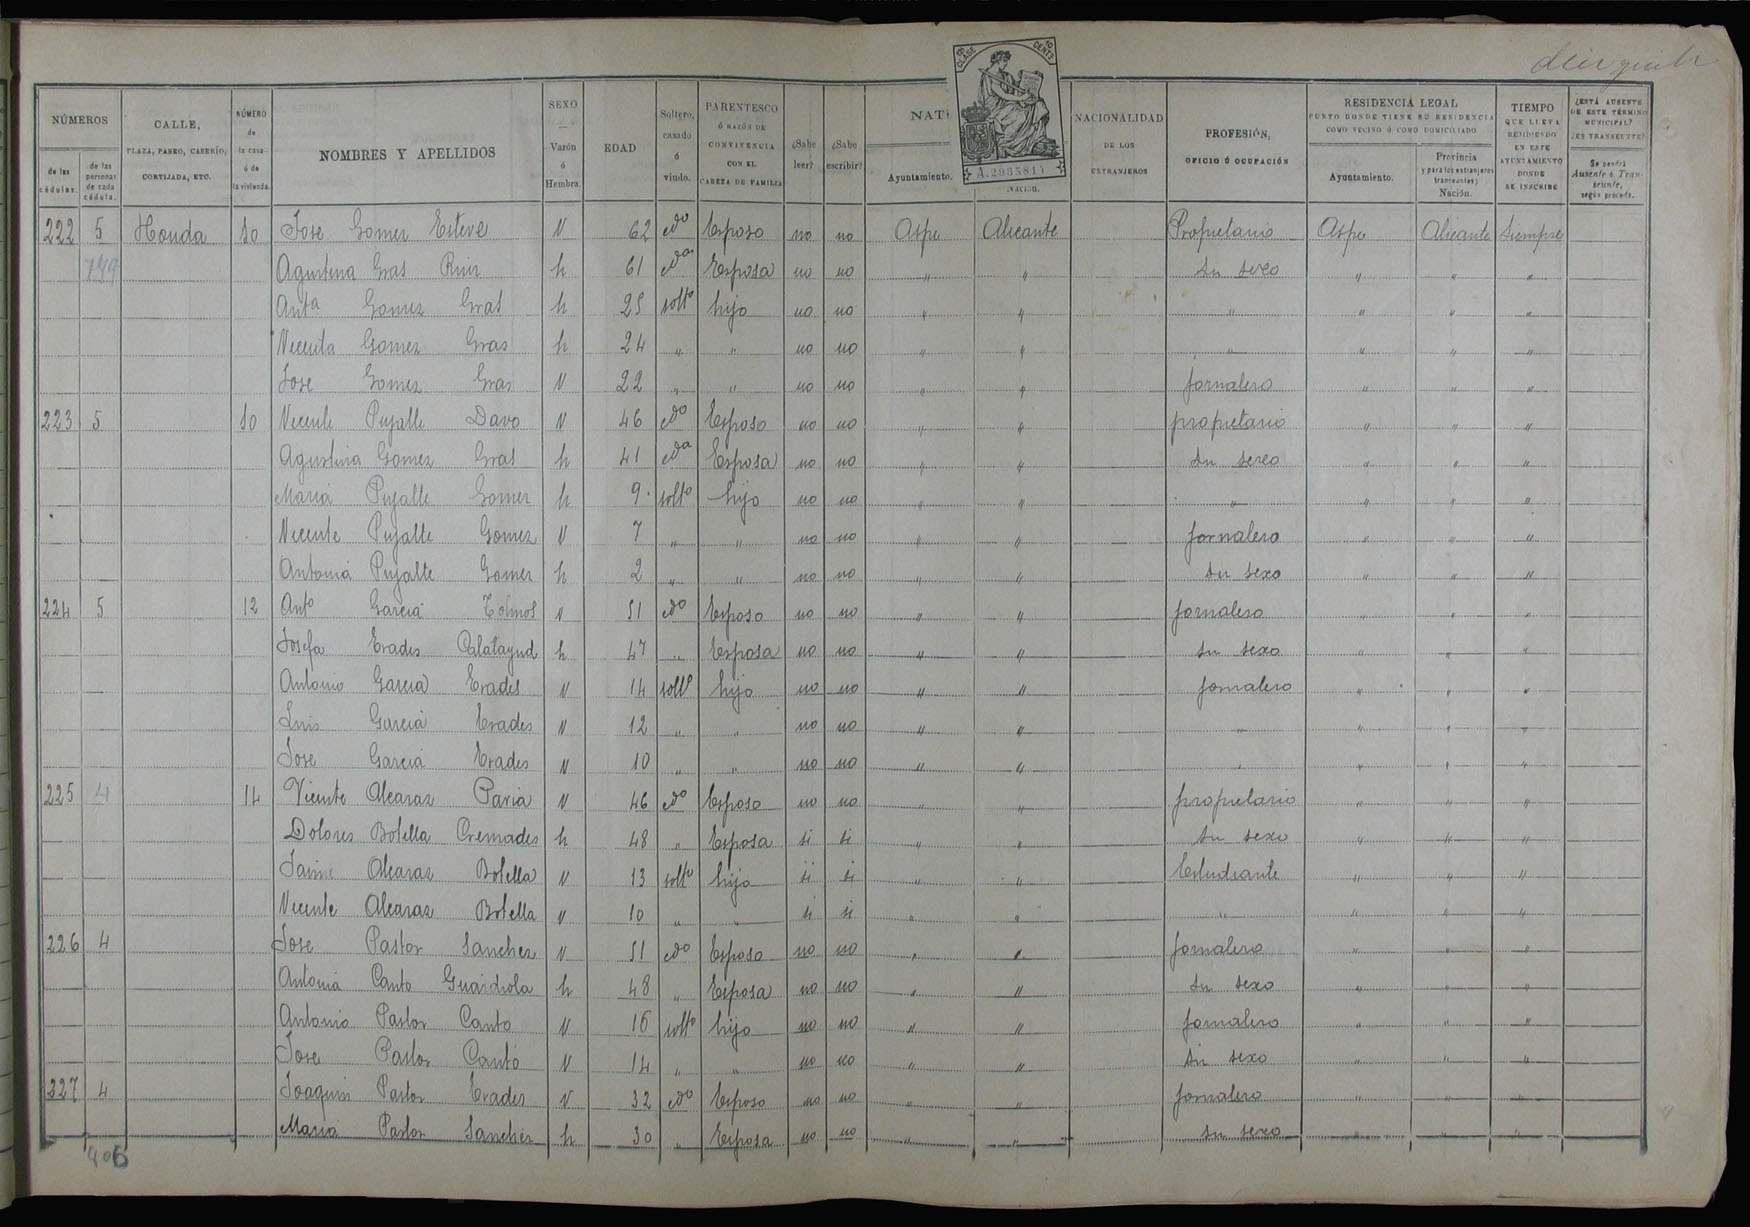 8ª CLASE 10 CENTS
A.2935814
NÚMEROS
de las cédulas.
de las personas de cada cédula.
CALLE, PLAZA, PASEO, CASERÍO, CORTIJADA, ETC.
NÚMERO de la casa ó de la vivienda.
NOMBRES Y APELLIDOS
SEXO — Varón ó Hembra.
EDAD
Soltero, casado ó viudo.
PARENTESCO Ó RAZÓN DE CONVIVENCIA CON EL CABEZA DE FAMILIA
¿Sabe leer?
¿Sabe escribir?
NAT
Ayuntamiento.
Nación.
NACIONALIDAD DE LOS EXTRANJEROS
PROFESIÓN, OFICIO Ó OCUPACIÓN
RESIDENCIA LEGAL
PUNTO DONDE TIENE SU RESIDENCIA COMO VECINO Ó COMO DOMICILIADO
Ayuntamiento.
Provincia y para los extranjeros transeuntes; Nación.
TIEMPO QUE LLEVA RESIDIENDO EN ESTE AYUNTAMIENTO DONDE SE INSCRIBE
¿ESTÁ AUSENTE DE ESTE TÉRMINO MUNICIPAL? ¿ES TRANSEUNTE?
Se pondrá Ausente ó Transeunte, según proceda.
222 5 Honda 10 Jose Gomez Esteve V 62 cdo Esposo no no Aspe Alicante Propietario Aspe Alicante Siempre
Agustina Gras Ruiz h 61 cda Esposa no no " " Su sexo " " "
Anta Gomez Gras h 25 solto hijo no no " " " " " "
Vicenta Gomez Gras h 24 " " no no " " " " " "
Jose Gomez Gras V 22 " " no no " " Jornalero " " "
223 5 10 Vicente Pujalte Davo V 46 cdo Esposo no no " " propietario " " "
Agustina Gomez Gras h 41 cda Esposa no no " " Su sexo " " "
Maria Pujalte Gomez h 9 solto hijo no no " " " " " "
Vicente Pujalte Gomez V 7 " " no no " " Jornalero " " "
Antonia Pujalte Gomez h 2 " " no no " " Su sexo " " "
224 5 12 Anto Garcia V 51 cdo Esposo no no " " Jornalero " " "
Josefa Erades Calatayud h 47 " Esposa no no " " Su sexo " " "
Antonio Garcia Erades V 14 solto hijo no no " " Jornalero " " "
Luis Garcia Erades V 12 " " no no " " " " " "
Jose Garcia Erades V 10 " " no no " " " " " "
225 4 14 Vicente Alcaraz Pavia V 46 cdo Esposo no no " " propietario " " "
Dolores Botella Cremades h 48 " Esposa si si " " Su sexo " " "
Jaime Alcaraz Botella V 13 solto hijo si si " " Estudiante " " "
Vicente Alcaraz Botella V 10 " " si si " " " " " "
226 4 Jose Pastor Sanchez V 51 cdo Esposo no no " " Jornalero " " "
Antonia Canto Guardiola h 48 " Esposa no no " " Su sexo " " "
Antonio Pastor Canto V 16 solto hijo no no " " Jornalero " " "
Jose Pastor Cantó V 14 " " no no " " Su sexo " " "
227 4 Joaquin Pastor Erades V 32 cdo Esposo no no " " Jornalero " " "
Maria Pastor Sanchez h 30 " Esposa no no " " Su sexo " " "